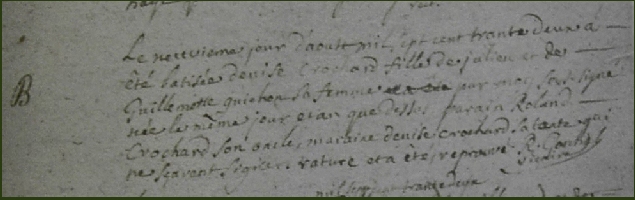 Le neuvième jour d'aoust mil sept cent trante deux a
B
été batisée denise Crochard fille de julien et de
Guillemette guichon sa femme par moy sousigné
née le même jour et an que dessus parain Roland
Crochard son oncle, maraine denise Crochard sa tante qui
ne sçavent signer. rature et a été, reprouvé R.
vicaire
mil sept cent trante deux